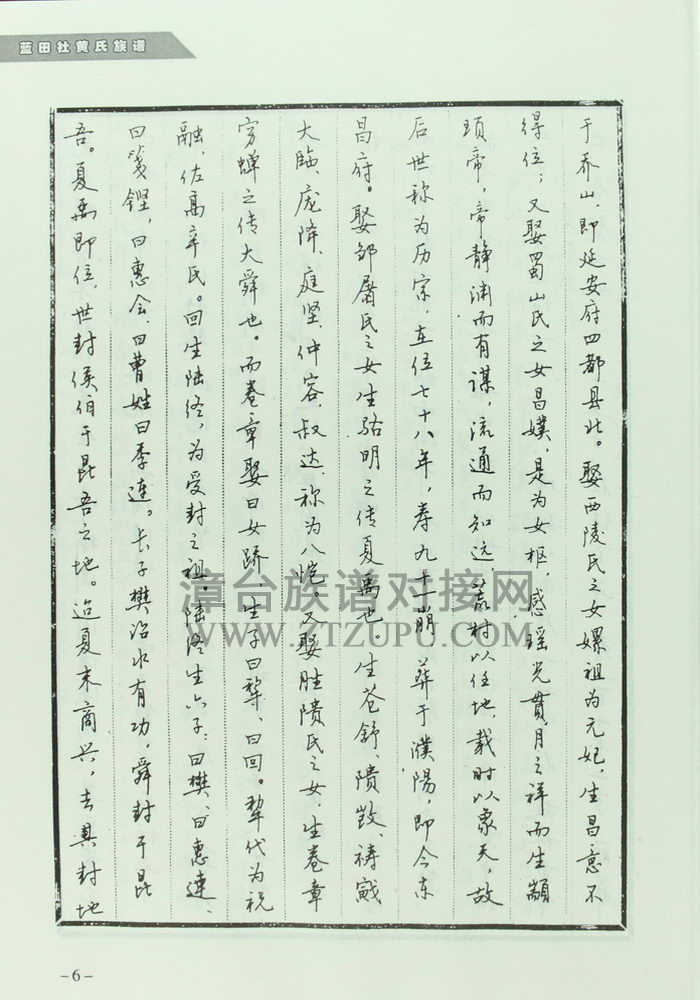 蓝田社黄氏族谱
于乔山，即延安府四都县北。娶西陵氏之女嫘祖为元妃，生昌意不
得位；又娶蜀山氏之女昌媄，是为女枢，感瑶光贯月之祥而生颛
顼帝，帝静渊而有谋，流通而知远，养材以任地，载时以象天，故
后世称为历宗，在位七十八年，寿九十一崩 葬于濮陽，即今东
昌府。娶邹屠氏之女生骆明之传夏禹也 生苍舒、隤敳、祷戭
大临、庞降、庭坚、仲容、叔达，称为八恺。又娶胜隤氏之女，生卷章
穷蝉之传大舜也。而卷章娶曰女趼，生子曰犂、曰回。犂代为祝
融，佐高辛氏。回生陆终，为受封之祖，陆终生六子：曰樊、曰惠连、
曰篯铿，曰惠会、曰曹姓曰季连。长子樊治水有功，舜封于昆
吾。夏禹即位，世封侯伯于昆吾之地。迨夏末商兴，去其封地
漳台族谱对接网
WWW.ZTZUPU.COM
-6-